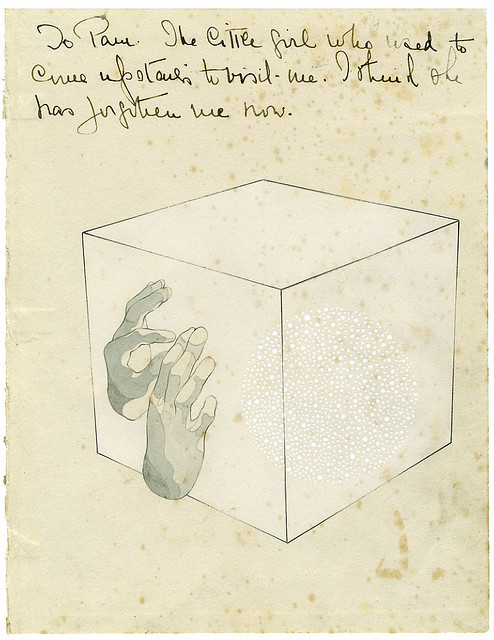 To Pam. The little girl who used to
come upstairs to visit me. I think she
has forgotten me now.